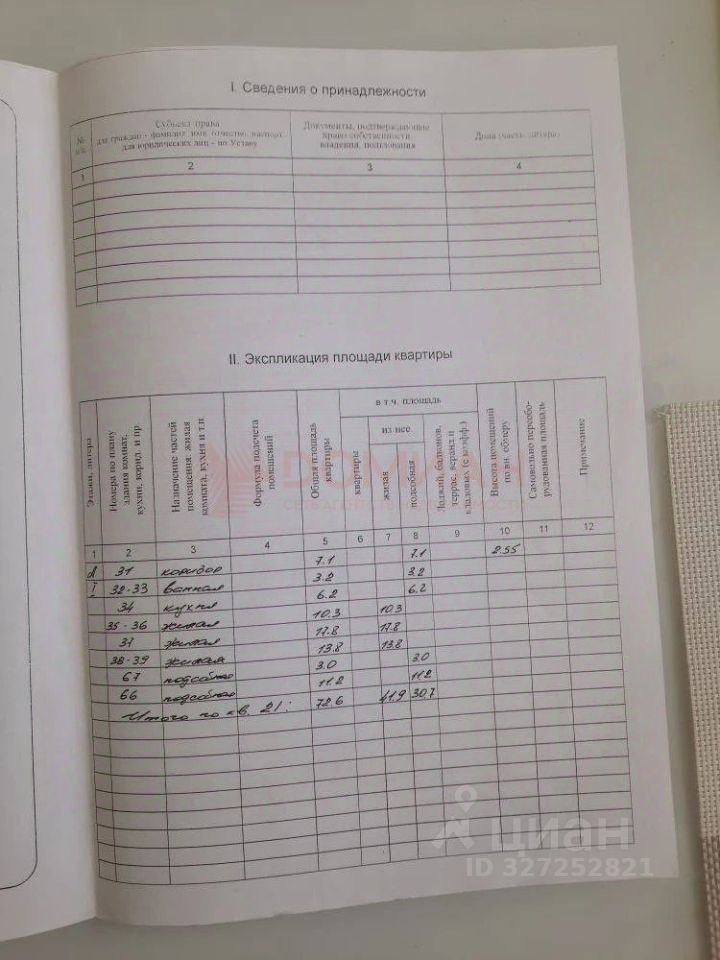 I. Сведения о принадлежности
№ п/п
Субъект права
для граждан - фамилия, имя, отчество, паспорт
для юридических лиц - по Уставу
Документы, подтверждающие
право собственности,
владения, пользования
Доля (часть, литера)
1 2 3 4
II. Экспликация площади квартиры
Этажи, литера
Номера по плану
здания комнат,
кухни, корид. и пр.
Назначение частей
помещения: жилая
комната, кухня и т.п.
Формула подсчета
помещений
Общая площадь
квартиры
в т.ч. площадь
квартиры
из нее
жилая
подсобная
Лоджий, балконов,
террас, веранд и
кладовых (с коэфф.)
Высота помещений
по вн. обмеру
Самовольно переобо-
рудованная площадь
Примечание
1 2 3 4 5 6 7 8 9 10 11 12
А 31 коридор 7.1 7.1 2.55
I 32-33 ванная 3.2 3.2
34 кухня 6.2 6.2
35-36 жилая 10.3 10.3
37 жилая 17.8 17.8
38-39 жилая 13.8 13.8
67 подсобная 3.0 3.0
66 подсобная 11.2 11.2
Итого по кв. 21: 72.6 41.9 30.7
циан
ID 327252821